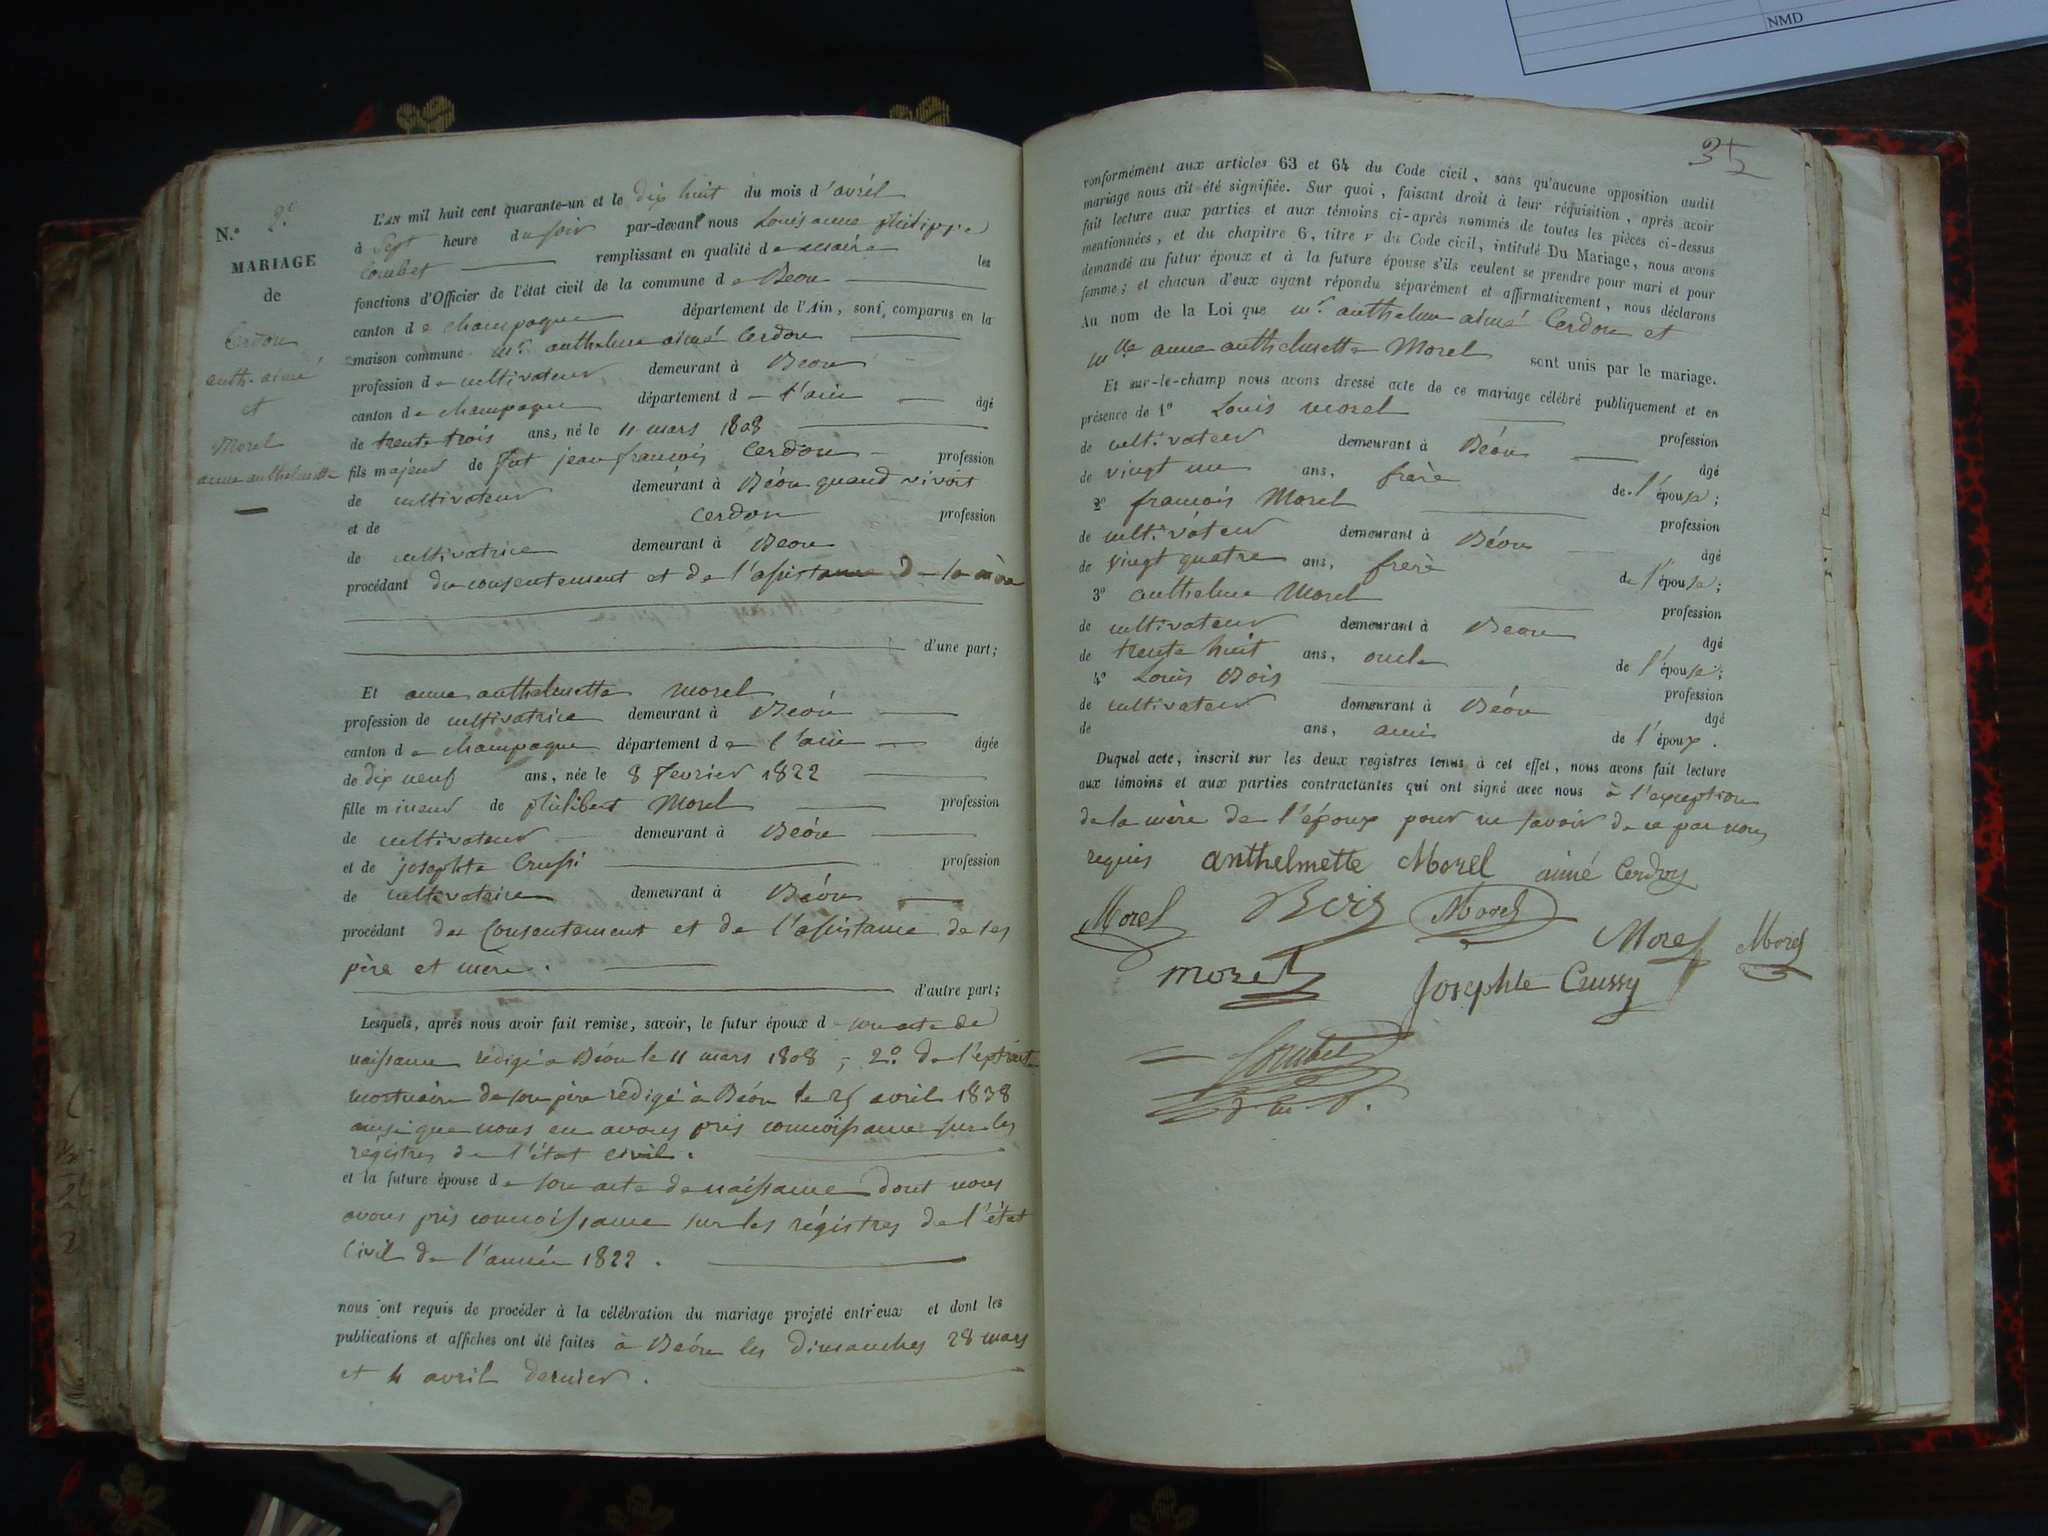 NMD
N.º 2.e
MARIAGE
de
Cerdon
anth. aimé
et
Morel
anne anthelmette
L'AN mil huit cent quarante-un et le dix huit du mois d'avril
à Sept heure du soir par-devant nous Louis anne philippe
Combet remplissant en qualité de maire les
fonctions d'Officier de l'état civil de la commune de Béon
canton de champagne département de l'Ain, sont comparus en la
maison commune mr. anthelme aimé Cerdon
profession de cultivateur demeurant à Béon
canton de champagne département de l'ain âgé
de trente trois ans, né le 11 mars 1808
fils majeur de fut jean françois Cerdon profession
de cultivateur demeurant à Béon quand vivoit
et de Cerdon profession
de cultivatrice demeurant à Béon
procédant du consentement et de l'assistance de la mère
d'une part;
Et anne anthelmette Morel
profession de cultivatrice demeurant à Béon
canton de champagne département de l'ain âgée
de dix neuf ans, née le 8 fevrier 1822
fille mineur de philibert Morel profession
de cultivateur demeurant à Béon
et de josephte Crussi profession
de cultivatrice demeurant à Béon
procédant du Consentement et de l'assistance de ses
père et mère.
d'autre part;
Lesquels, après nous avoir fait remise, savoir, le futur époux d son acte de
naissance rédigé a Béon le 11 mars 1808; 2.º de l'extrait
mortuaire de son père rédigé à Béon le 25 avril 1838
ainsi que nous en avons pris connoissance sur les
registres de l'état civil.
et la future épouse de son acte de naissance dont nous
avons pris connoissance sur les régistres de l'état
Civil de l'année 1822.
nous ont requis de procéder à la célébration du mariage projeté entr'eux et dont les
publications et affiches ont été faites à Béon les dimanches 28 mars
et 4 avril dernier.
35
conformément aux articles 63 et 64 du Code civil, sans qu'aucune opposition audit
mariage nous ait été signifiée. Sur quoi, faisant droit à leur réquisition, après avoir
fait lecture aux parties et aux témoins ci-après nommés de toutes les pièces ci-dessus
mentionnées, et du chapitre 6, titre v du Code civil, intitulé Du Mariage, nous avons
demandé au futur époux et à la future épouse s'ils veulent se prendre pour mari et pour
femme; et chacun d'eux ayant répondu séparément et affirmativement, nous déclarons
Au nom de la Loi que mr. anthelme aimé Cerdon et
mlle anne anthelmette Morel sont unis par le mariage.
Et sur-le-champ nous avons dressé acte de ce mariage célébré publiquement et en
présence de 1º Louis Morel profession
de cultivateur demeurant à Béon âgé
de vingt un ans, frère de l'épouse;
2º françois Morel profession
de cultivateur demeurant à Béon âgé
de vingt quatre ans, frère de l'épouse;
3º anthelme Morel profession
de cultivateur demeurant à Béon âgé
de trente huit ans, oncle de l'épouse;
4º Louis Bois profession
de cultivateur demeurant à Béon âgé
de ans, ami de l'époux.
Duquel acte, inscrit sur les deux registres tenus à cet effet, nous avons fait lecture
aux témoins et aux parties contractantes qui ont signé avec nous à l'exception
de la mère de l'époux pour ne savoir de ce par nous
requis anthelmette Morel aimé Cerdon
Morel Bois Morel Morel Morel
morel Josephte Crussy
Combet